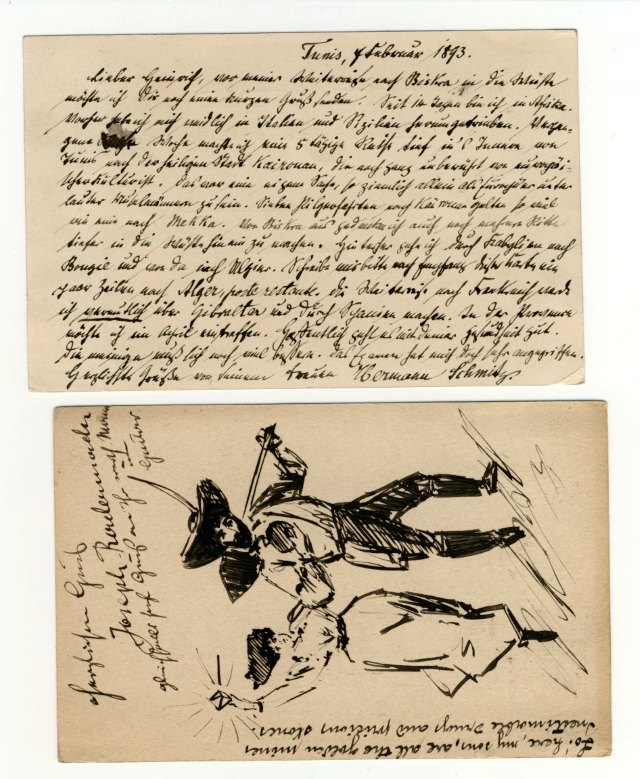 Tunis, 7 Februar 1893.
Lieber Heinrich, vor meiner Weiterreise nach Biskra in die Wüste
möchte ich Dir noch einen kurzen Gruß senden. Seit 14 Tagen bin ich in Afrika.
Vorher habe ich mich endlich in Italien und Sizilien herumgetrieben. Vergan-
gene Woche machte ich eine 5 tägige Reise tief ins Innere von
Tunis nach der heiligen Stadt Kairouan, die noch ganz unberührt von europäi-
scher Kultur ist. Das war eine eigene Sache, so ziemlich allein als
unter
lauter Muselmännern zu sein. Sieben Pilgerfahrten nach Kairouan gelten so viel
wie eine nach Mekka. Von Biskra aus gedenke ich auch noch mehrere Ritte
tiefer in die Wüste hinein zu machen. Hierauf gehe ich durch Kabylien nach
Bougie und von da nach Algier. Schreibe mir bitte nach Empfang dieser Karte ein
paar Zeilen nach Alger, poste restante. Die Weiterreise nach Frankreich werde
ich vermutlich über Gibraltar und durch Spanien machen. In der Provence
möchte ich im April eintreffen. Hoffentlich geht es mit deiner Gesundheit gut.
Die meinige muß sich noch viel bessern. Das Examen hat mich doch sehr angegriffen.
Herzlichste Grüße von Deinem treuen Hermann Schmitz.
Herzlichen Gruß
Joseph
Gruß
Lo! here, my sons, are all the golden mines
Inestimable drugs and precious stones.